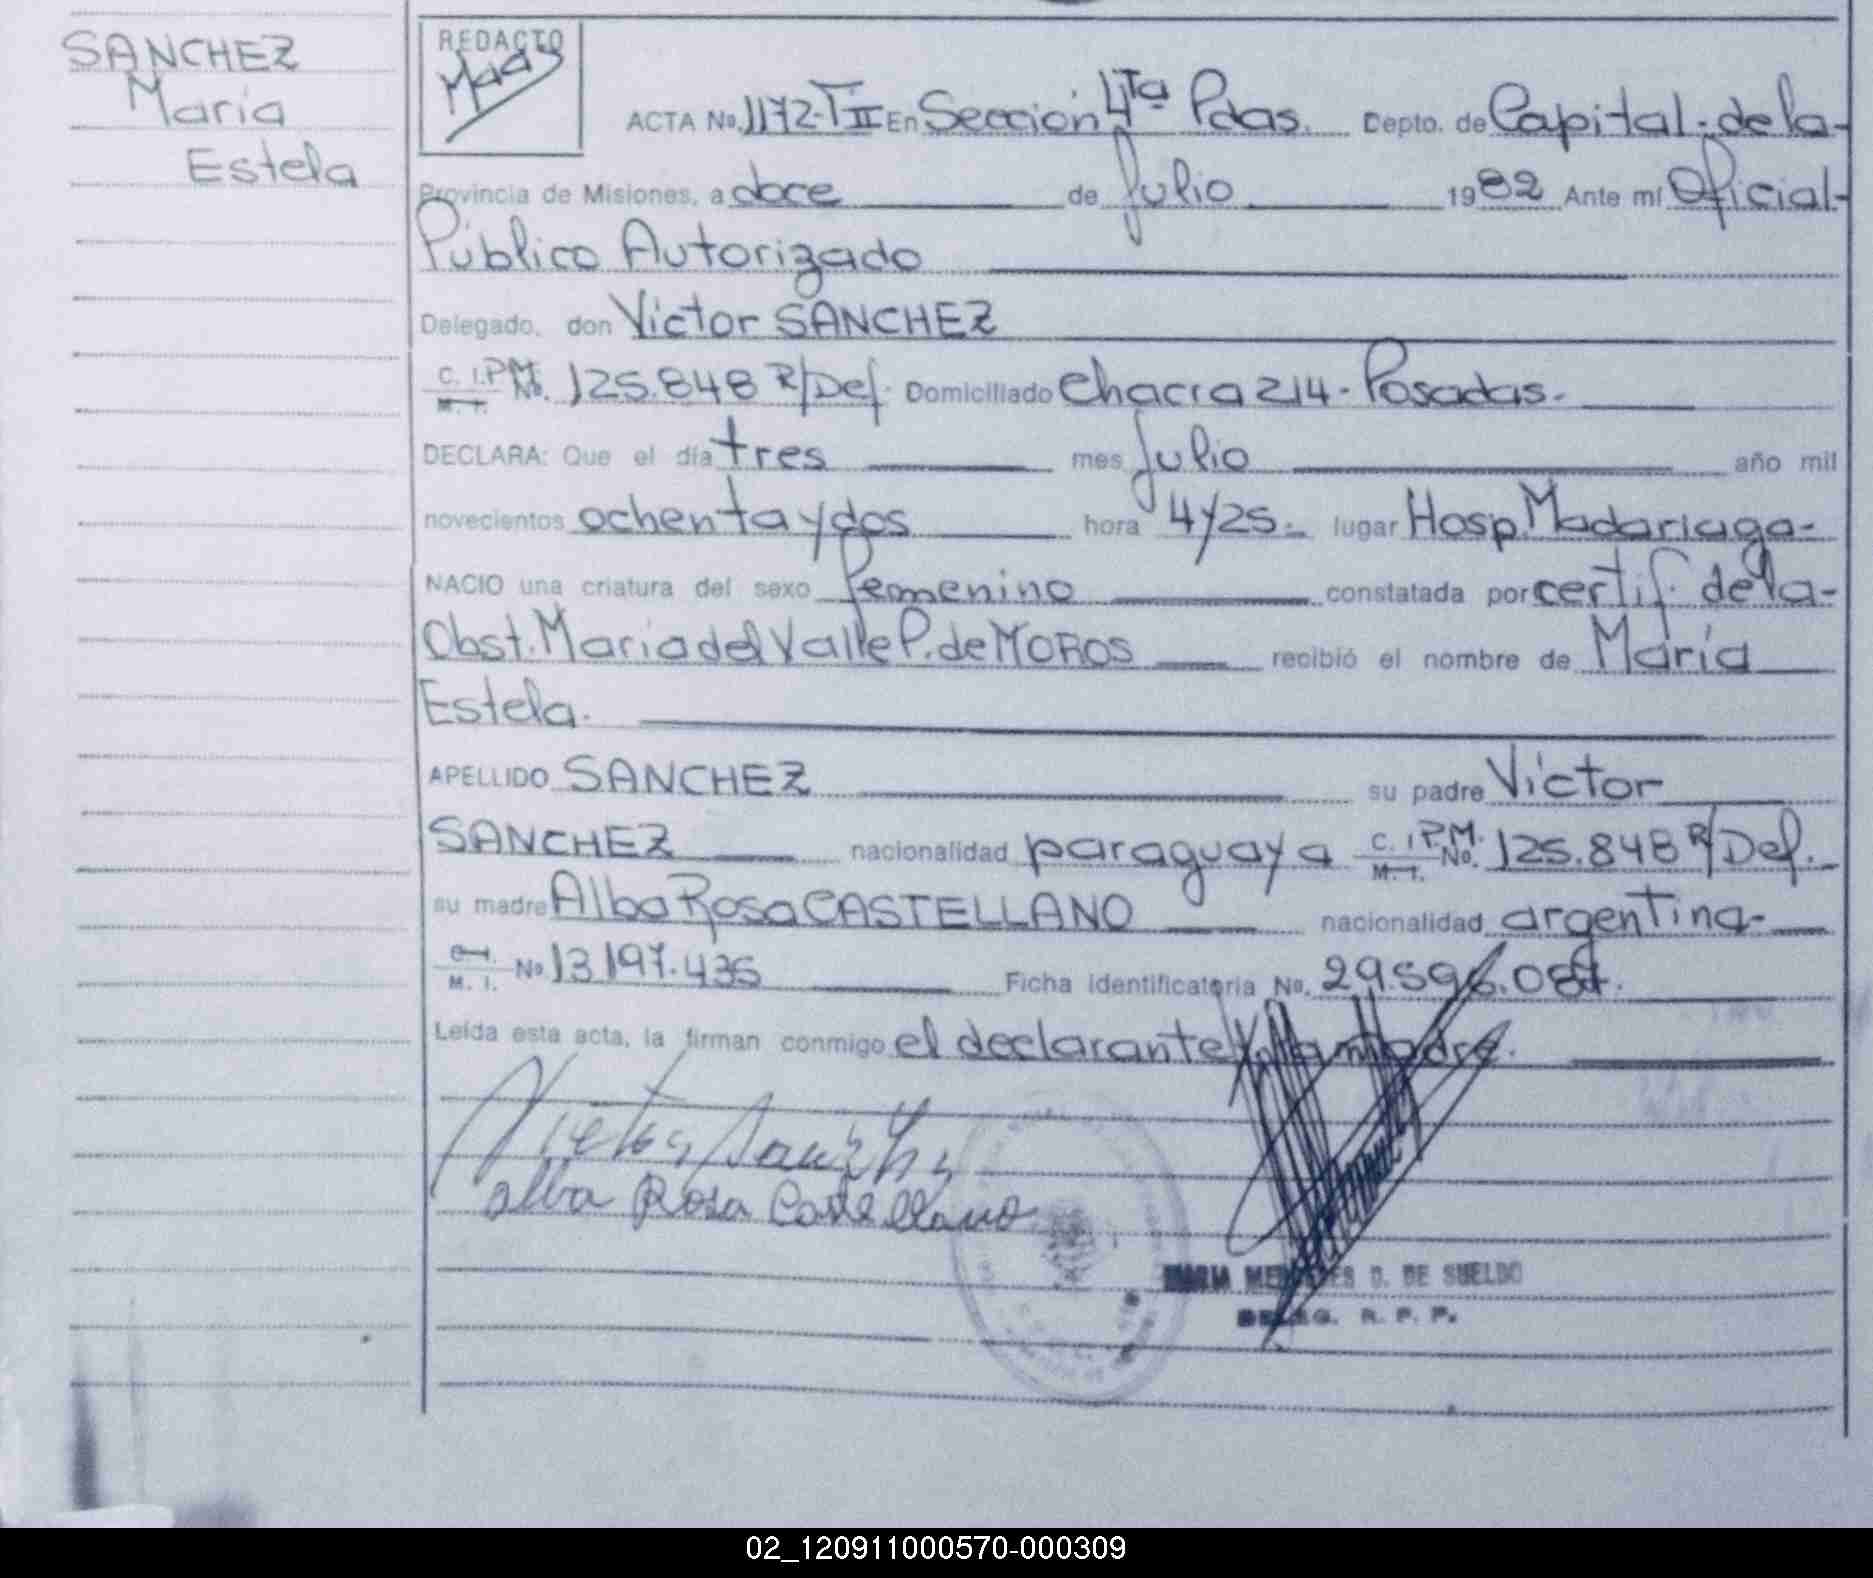 SANCHEZ
María
Estela
REDACTO
Maas
ACTA No. 1172-TII En Sección 4Ta Pdas. Depto. de Capital-de la-
Provincia de Misiones, a doce de Julio 1982 Ante mí Oficial-
Público Autorizado
Delegado, don Víctor SANCHEZ
C. I.P.M. No. 125.848 R/Def. Domiciliado Chacra 214-Posadas.
M. I.
DECLARA: Que el día tres mes Julio año mil
novecientos ochenta y dos hora 4y25.- lugar Hosp. Madariaga-
NACIO una criatura del sexo femenino constatada por certif. de la-
Obst. María del Valle P. de MOROS recibió el nombre de María
Estela.
APELLIDO SANCHEZ su padre Víctor
SANCHEZ nacionalidad paraguaya C. I.P.M. No. 125.848 R/Def.
M. I.
su madre Alba Rosa CASTELLANO nacionalidad argentina-
C. I.
M. I. No. 13.197.435 Ficha identificatoria No. 29.596.087.
Leída esta acta, la firman conmigo el declarante y la madre.
Victor Sanchez
Alba Rosa Castellano
MARIA MERCEDES D. DE SUELDO
DELEG. R. P. P.
02_120911000570-000309